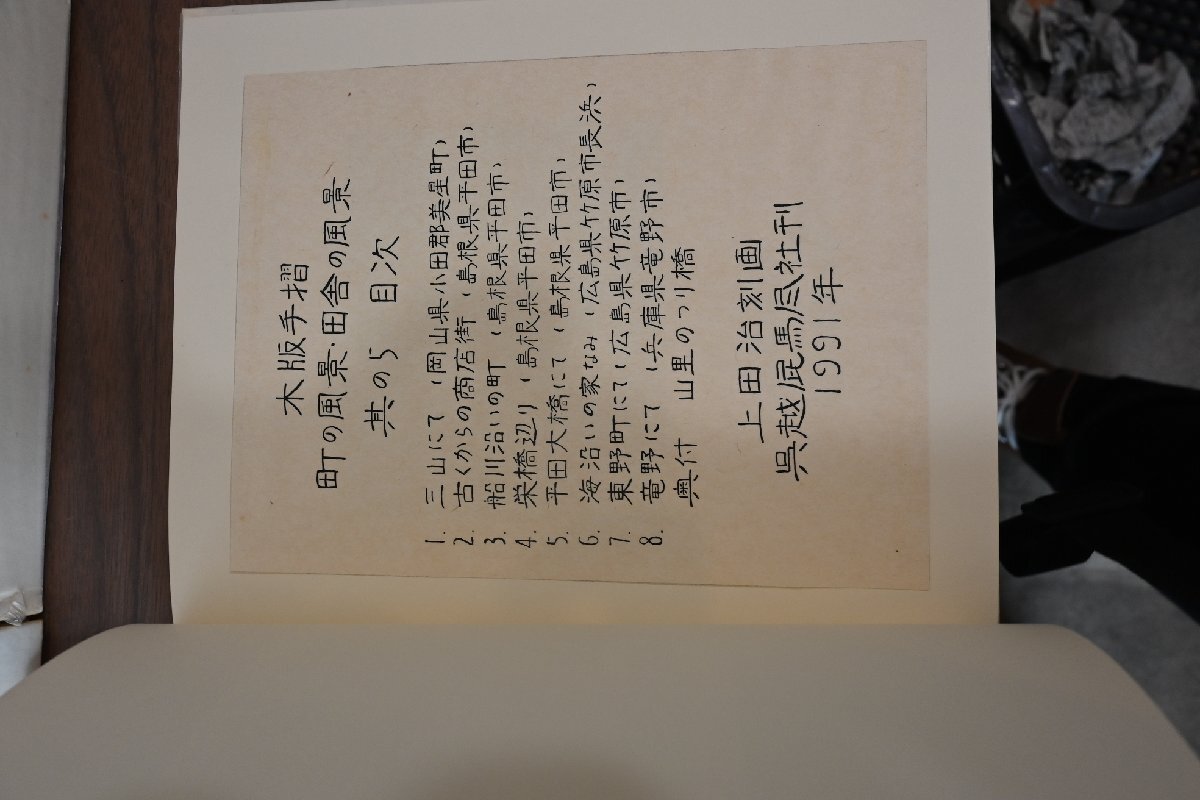 木版手摺
町の風景・田舎の風景
其の5 目次
1. 三山にて (岡山県小田郡美星町)
2. 古くからの商店街 (島根県平田市)
3. 船川沿いの町 (島根県平田市)
4. 栄橋辺り (島根県平田市)
5. 平田大橋にて (島根県平田市)
6. 海沿いの家なみ (広島県竹原市長浜)
7. 東野町にて (広島県竹原市)
8. 竜野にて (兵庫県竜野市)
奥付 山里のつり橋
上田治刻画
呉越屁馬尽社刊
1991年